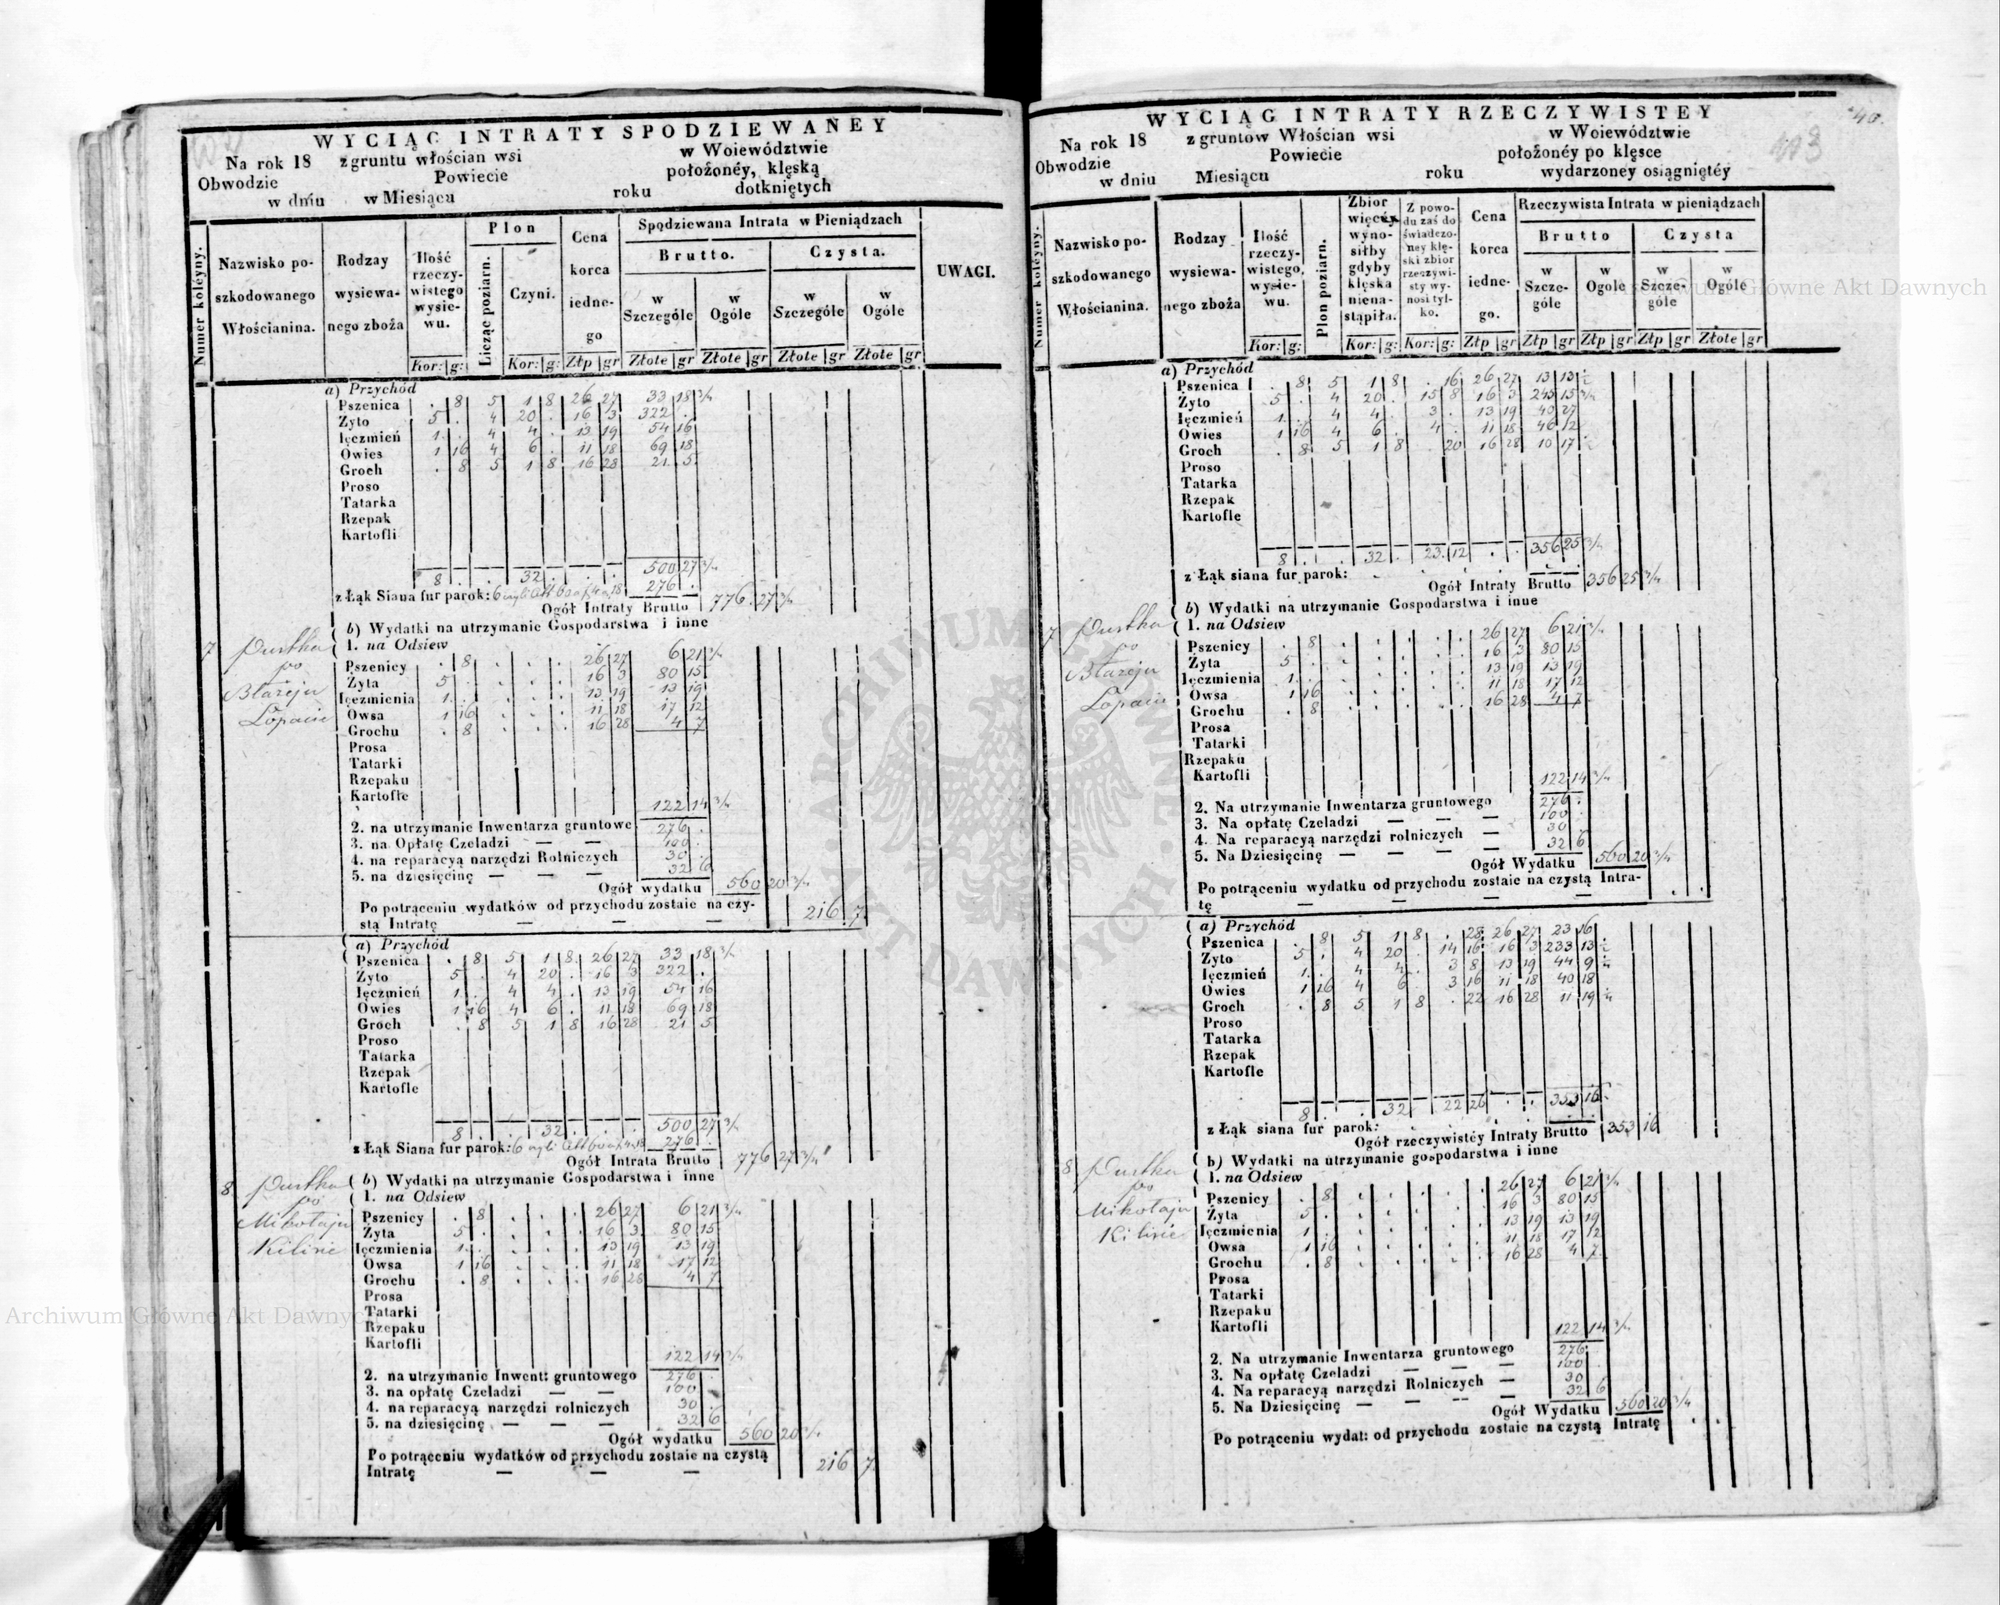 WYCIĄG INTRATY SPODZIEWANEY
Na rok 18 z gruntu włościan wsi w Woiewództwie
Obwodzie Powiecie położonéy, klęską
w dniu w Miesiącu roku dotkniętych
Numer koléyny.
Nazwisko poszkodowanego Włościanina.
Rodzay wysiewanego zboża
Ilość rzeczywistego wysiewu.
Plon
Licząc poziarn.
Czyni.
Cena korca iednego
Spodziewana Intrata w Pieniądzach
Brutto. Czysta.
w Szczególe w Ogóle w Szczególe w Ogóle
UWAGI.
Kor: g: Kor: g: Złp gr Złote gr Złote gr Złote gr Złote gr
a) Przychód
Pszenica . 8 5 1 8 26 27 33 18 3/4
Żyto 5 . 4 20 . 16 3 322 .
Ięczmień 1 . 4 4 . 13 19 54 16
Owies 1 16 4 6 . 11 18 69 18
Groch . 8 5 1 8 16 28 21 5
Proso
Tatarka
Rzepak
Kartofli
8 . . 32 . . . 500 27 3/4
z Łąk Siana fur parok: 6 276 .
Ogół Intraty Brutto 776 27 3/4
b) Wydatki na utrzymanie Gospodarstwa i inne
1. na Odsiew
7 Pustka po Błażeju Łopacie
Pszenicy . 8 . . . 26 27 6 21 3/4
Żyta 5 . . . . 16 3 80 15
Ięczmienia 1 . . . . 13 19 13 19
Owsa 1 16 . . . 11 18 17 12
Grochu . 8 . . . 16 28 4 7
Prosa
Tatarki
Rzepaku
Kartofle
122 14 3/4
2. na utrzymanie Inwentarza gruntowe 276 .
3. na Opłatę Czeladzi — — 100 .
4. na reparacyą narzędzi Rolniczych 30 .
5. na dziesięcinę — — — 32 6
Ogół wydatku 560 20 3/4
Po potrąceniu wydatków od przychodu zostaie na czy-
stą Intratę — — — 216 7
a) Przychód
Pszenica . 8 5 1 8 26 27 33 18 3/4
Żyto 5 . 4 20 . 16 3 322 .
Ięczmień 1 . 4 4 . 13 19 54 16
Owies 1 16 4 6 . 11 18 69 18
Groch . 8 5 1 8 16 28 21 5
Proso
Tatarka
Rzepak
Kartofle
8 . . 32 . . . 500 27 3/4
z Łąk Siana fur parok: 6 276 .
Ogół Intrata Brutto 776 27 3/4
b) Wydatki na utrzymanie Gospodarstwa i inne
1. na Odsiew
8 Pustka po Mikołaju Kilinie
Pszenicy . 8 . . . 26 27 6 21 3/4
Żyta 5 . . . . 16 3 80 15
Ięczmienia 1 . . . . 13 19 13 19
Owsa 1 16 . . . 11 18 17 12
Grochu . 8 . . . 16 28 4 7
Prosa
Tatarki
Rzepaku
Kartofli
122 14 3/4
2. na utrzymanie Inwent: gruntowego 276 .
3. na opłatę Czeladzi — — 100 .
4. na reparacyą narzędzi rolniczych 30 .
5. na dziesięcinę — — — 32 6
Ogół wydatku 560 20 3/4
Po potrąceniu wydatków od przychodu zostaie na czystą
Intratę — — — 216 7
WYCIĄG INTRATY RZECZYWISTEY
40.
Na rok 18 z gruntów Włościan wsi w Woiewództwie
Obwodzie Powiecie położonéy po klęsce
w dniu Miesiącu roku wydarzoney osiągniętéy
Numer koléyny.
Nazwisko poszkodowanego Włościanina.
Rodzay wysiewanego zboża
Ilość rzeczywistego wysiewu.
Plon poziarn.
Zbior więcéy wynosiłby gdyby klęska nienastąpiła.
Z powodu zaś doświadczoney klęski zbior rzeczywisty wynosi tylko.
Cena korca iednego.
Rzeczywista Intrata w pieniądzach
Brutto Czysta
w Szczególe w Ogole w Szczególe w Ogóle
Kor: g: Kor: g: Kor: g: Złp gr Złp gr Złp gr Złp gr Złote gr
a) Przychód
Pszenica . 8 5 1 8 . 16 26 27 13 13
Żyto 5 . 4 20 . 15 8 16 3 245 15 3/4
Ięczmień 1 . 4 4 . 3 . 13 19 40 27
Owies 1 16 4 6 . 4 . 11 18 46 12
Groch . 8 5 1 8 . 20 16 28 10 17
Proso
Tatarka
Rzepak
Kartofle
8 . . 32 . 23 12 . . 356 25 3/4
z Łąk siana fur parok:
Ogół Intraty Brutto 356 25 3/4
b) Wydatki na utrzymanie Gospodarstwa i inne
1. na Odsiew
7 Pustka po Błażeju Łopacie
Pszenicy . 8 26 27 6 21 3/4
Żyta 5 . 16 3 80 15
Ięczmienia 1 . 13 19 13 19
Owsa 1 16 11 18 17 12
Grochu . 8 16 28 4 7
Prosa
Tatarki
Rzepaku
Kartofli
122 14 3/4
2. Na utrzymanie Inwentarza gruntowego 276 .
3. Na opłatę Czeladzi — — — 100 .
4. Na reparacyą narzędzi rolniczych — 30
5. Na Dziesięcinę — — — — 32 6
Ogół Wydatku 560 20 3/4
Po potrąceniu wydatku od przychodu zostaie na czystą Intra-
tę — — — — — . .
a) Przychód
Pszenica . 8 5 1 8 . 28 26 27 23 16
Żyto 5 . 4 20 . 14 16 16 3 233 13
Ięczmień 1 . 4 4 . 3 8 13 19 44 9
Owies 1 16 4 6 . 3 16 11 18 40 18
Groch . 8 5 1 8 . 22 16 28 11 19
Proso
Tatarka
Rzepak
Kartofle
8 . . 32 . 22 26 . . 353 16
z Łąk siana fur parok:
Ogół rzeczywistéy Intraty Brutto 353 16
b) Wydatki na utrzymanie gospodarstwa i inne
1. na Odsiew
8 Pustka po Mikołaju Kilinie
Pszenicy . 8 26 27 6 21 3/4
Żyta 5 . 16 3 80 15
Ięczmienia 1 . 13 19 13 19
Owsa 1 16 11 18 17 12
Grochu . 8 16 28 4 7
Prosa
Tatarki
Rzepaku
Kartofli
122 14 3/4
2. Na utrzymanie Inwentarza gruntowego 276 .
3. Na opłatę Czeladzi — — — 100
4. Na reparacyą narzędzi Rolniczych — 30
5. Na Dziesięcinę — — — — 32 6
Ogół Wydatku 560 20 3/4
Po potrąceniu wydat: od przychodu zostaie na czystą Intratę . .
Archiwum Główne Akt Dawnych
Archiwum Główne Akt Dawnych
ARCHIWUM GŁÓWNE AKT DAWNYCH